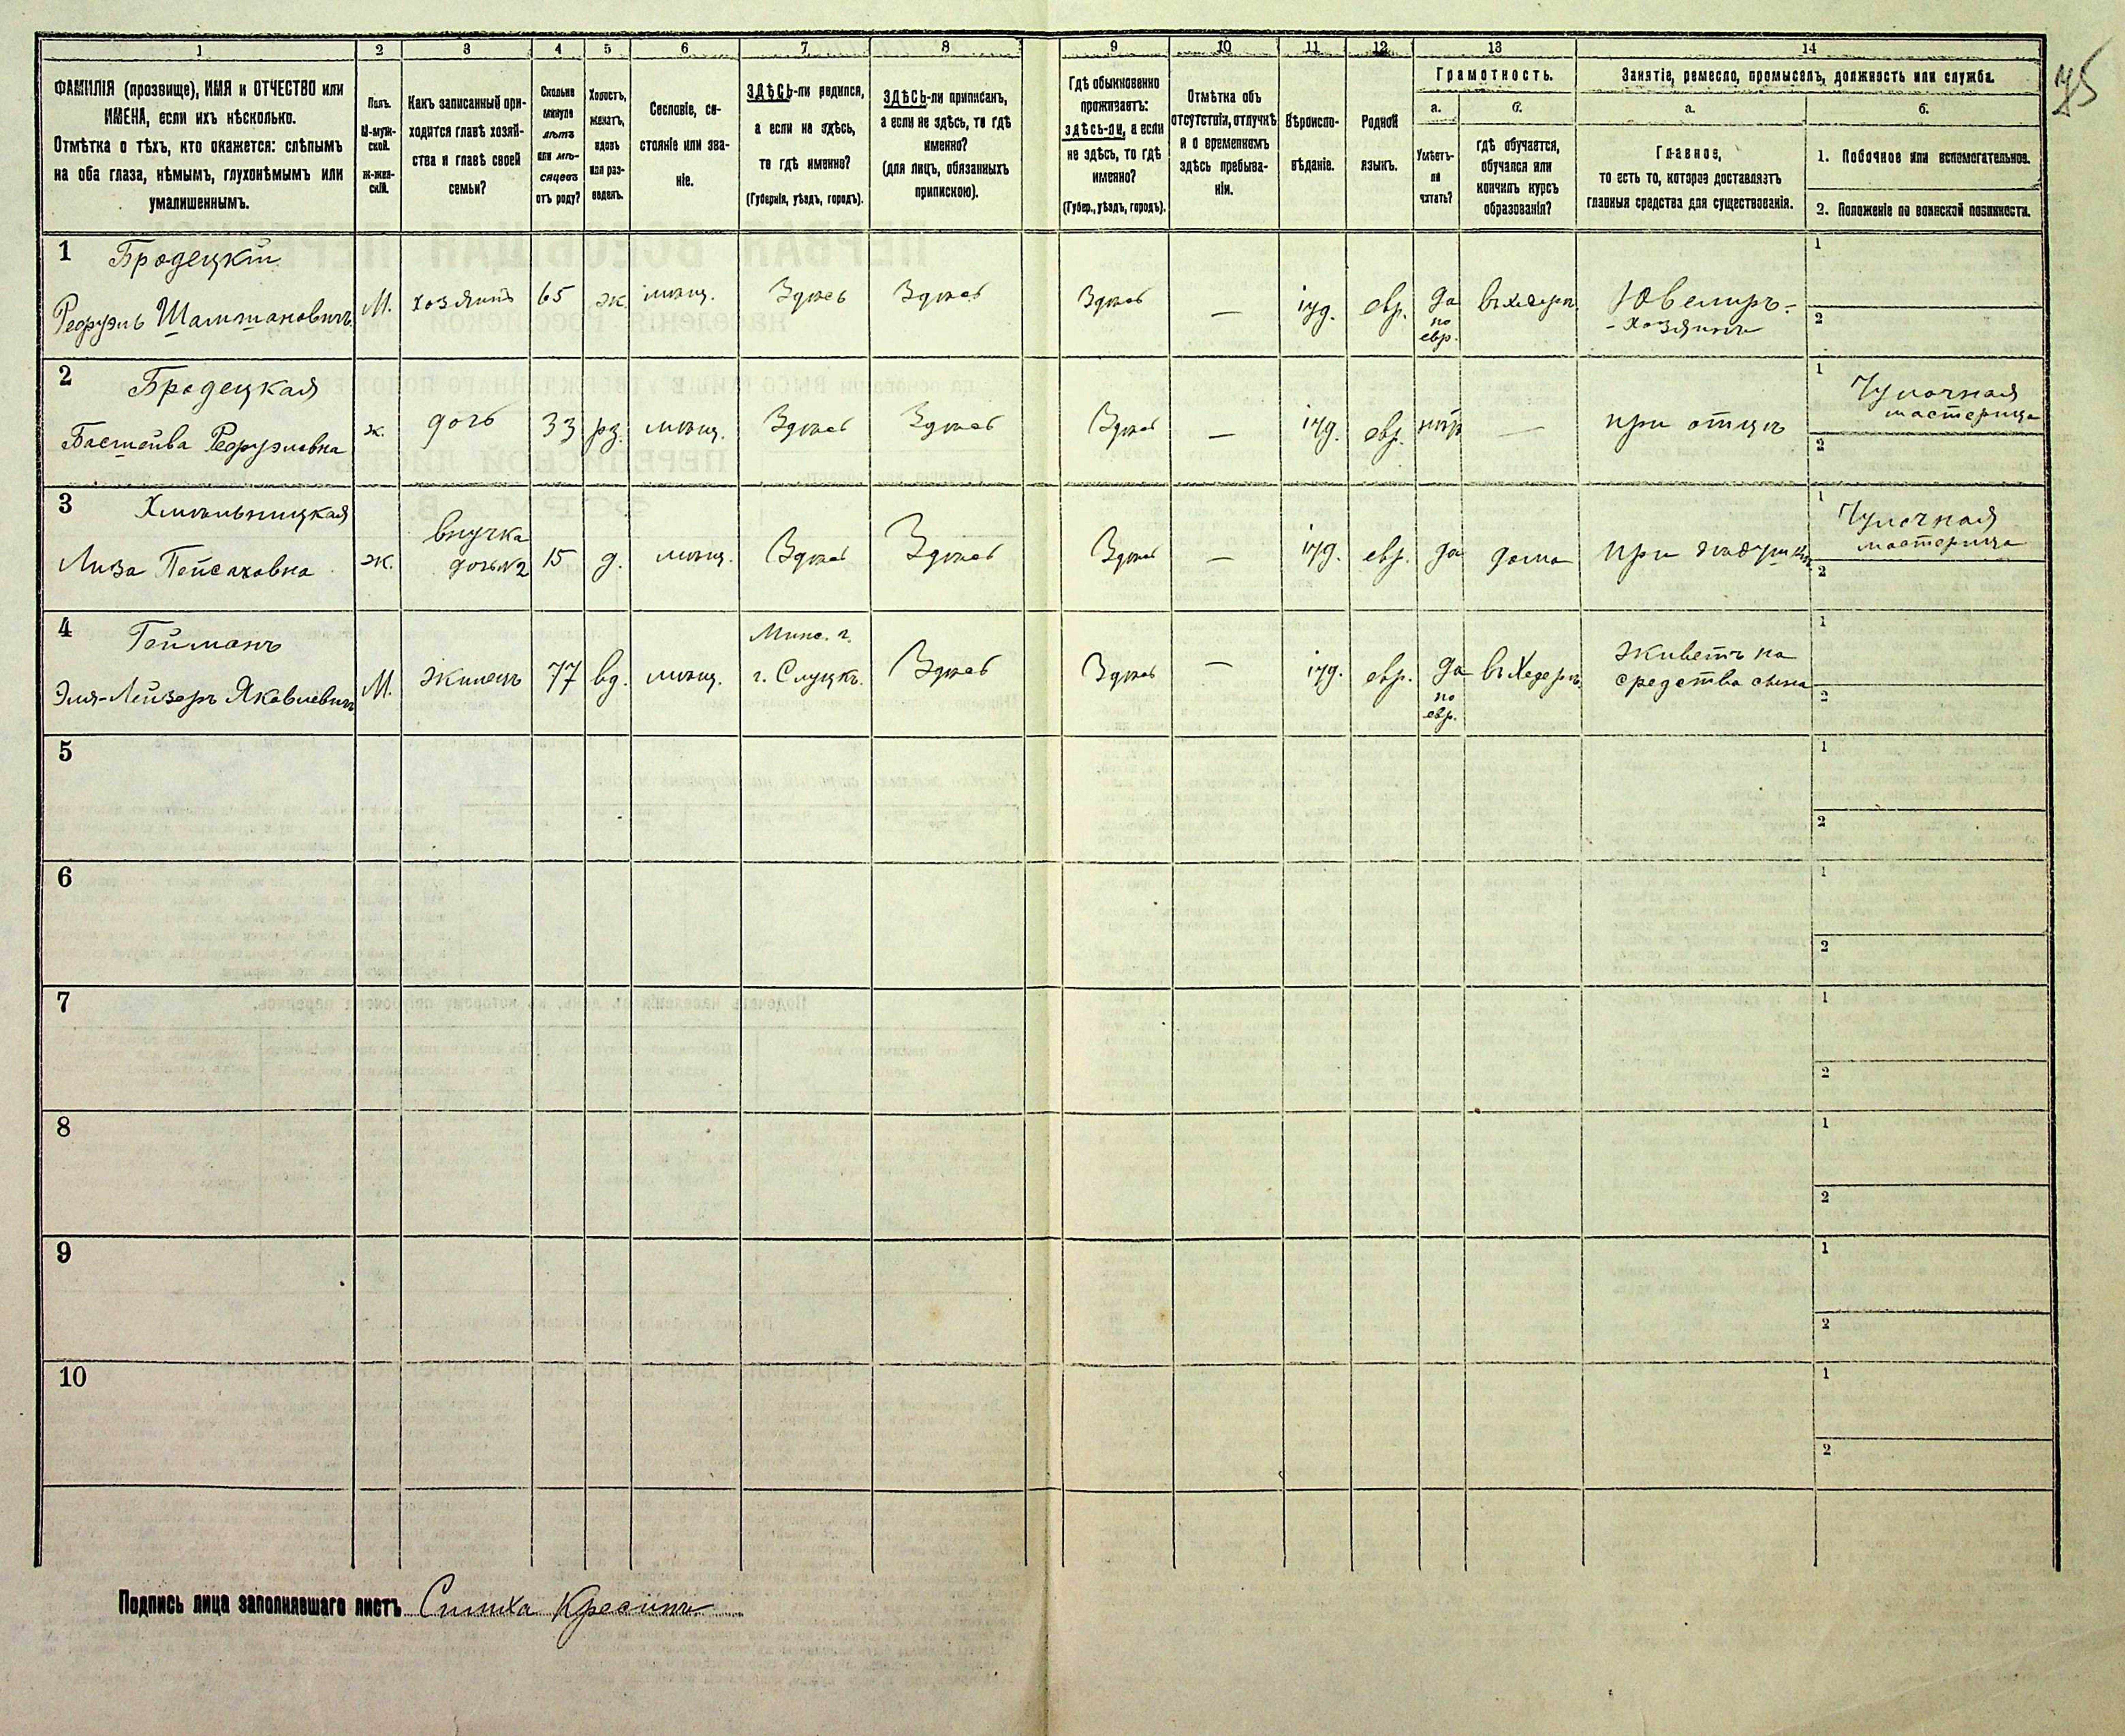 75
1 2 3 4 5 6 7 8 9 10 11 12 13 14
ФАМИЛІЯ (прозвище), ИМЯ и ОТЧЕСТВО или
ИМЕНА, если ихъ нѣсколько.
Отмѣтка о тѣхъ, кто окажется: слѣпымъ
на оба глаза, нѣмымъ, глухонѣмымъ или
умалишеннымъ.
Полъ.
М-муж-
ской.
Ж-жен-
скій.
Какъ записанный при-
ходится главѣ хозяй-
ства и главѣ своей
семьи?
Сколько
минуло
лѣтъ
или мѣ-
сяцевъ
отъ роду?
Холостъ,
женатъ,
вдовъ
или раз-
веденъ.
Сословіе, со-
стояніе или зва-
ніе.
ЗДѢСЬ-ли родился,
а если не здѣсь,
то гдѣ именно?
(Губернія, уѣздъ, городъ).
ЗДѢСЬ-ли приписанъ,
а если не здѣсь, то гдѣ
именно?
(для лицъ, обязанныхъ
припискою).
Гдѣ обыкновенно
проживаетъ:
здѣсь-ли, а если
не здѣсь, то гдѣ
именно?
(Губер., уѣздъ, городъ).
Отмѣтка объ
отсутствіи, отлучкѣ
и о временномъ
здѣсь пребыва-
ніи.
Вѣроиспо-
вѣданіе.
Родной
языкъ.
Грамотность.
а.
Умѣетъ-
ли
читать?
б.
гдѣ обучается,
обучался или
кончилъ курсъ
образованія?
Занятіе, ремесло, промыселъ, должность или служба.
а.
Главное,
то есть то, которое доставляетъ
главныя средства для существованія.
б.
1. Побочное или вспомогательное.
2. Положеніе по воинской повинности.
1 Бродецкій
Рефуэль Шальмановичъ
М. хозяинъ 65 ж мѣщ. Здѣсь Здѣсь Здѣсь — іуд. евр. да
по
евр.
въ хедерѣ
Ювелиръ-
-хозяинъ
1
2
2 Бродецкая
Басшейва Рефуэловна
ж. дочь 33 рз. мѣщ. Здѣсь Здѣсь Здѣсь — іуд. евр. нѣтъ —
при отцѣ
1 Чулочная
мастерица
2
3 Хмѣльницкая
Лиза Пейсаховна
ж. внучка
дочь №2
15 д. мѣщ. Здѣсь Здѣсь Здѣсь — іуд. евр. да дома
при дѣдушкѣ
1 Чулочная
мастерица
2
4 Гейманъ
Эля-Лейзеръ Яковлевичъ
М. жилецъ 77 вд. мѣщ. Минс. г.
г. Слуцкъ.
Здѣсь Здѣсь — іуд. евр. да
по
евр.
въ Хедерѣ
живетъ на
средства сына
1
2
5 1
2
6 1
2
7 1
2
8 1
2
9 1
2
10 1
2
Подпись лица заполнявшаго листъ Симха Кресинъ